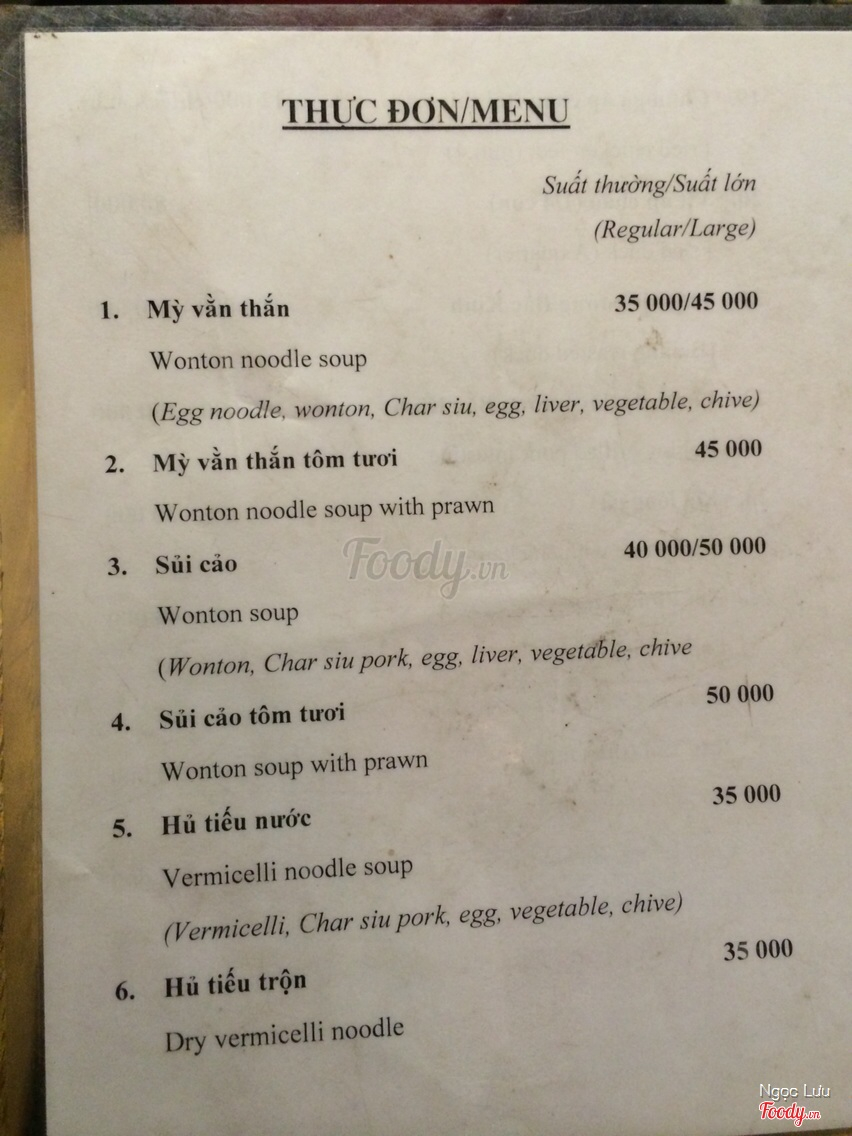 THỰC ĐƠN/MENU
Suất thường/Suất lớn
(Regular/Large)
1. Mỳ vằn thắn 35 000/45 000
Wonton noodle soup
(Egg noodle, wonton, Char siu, egg, liver, vegetable, chive)
2. Mỳ vằn thắn tôm tươi 45 000
Wonton noodle soup with prawn
3. Sủi cảo 40 000/50 000
Foody.vn
Wonton soup
(Wonton, Char siu pork, egg, liver, vegetable, chive
4. Sủi cảo tôm tươi 50 000
Wonton soup with prawn
5. Hủ tiếu nước 35 000
Vermicelli noodle soup
(Vermicelli, Char siu pork, egg, vegetable, chive)
6. Hủ tiếu trộn 35 000
Dry vermicelli noodle
Ngọc Lưu
Foody.vn